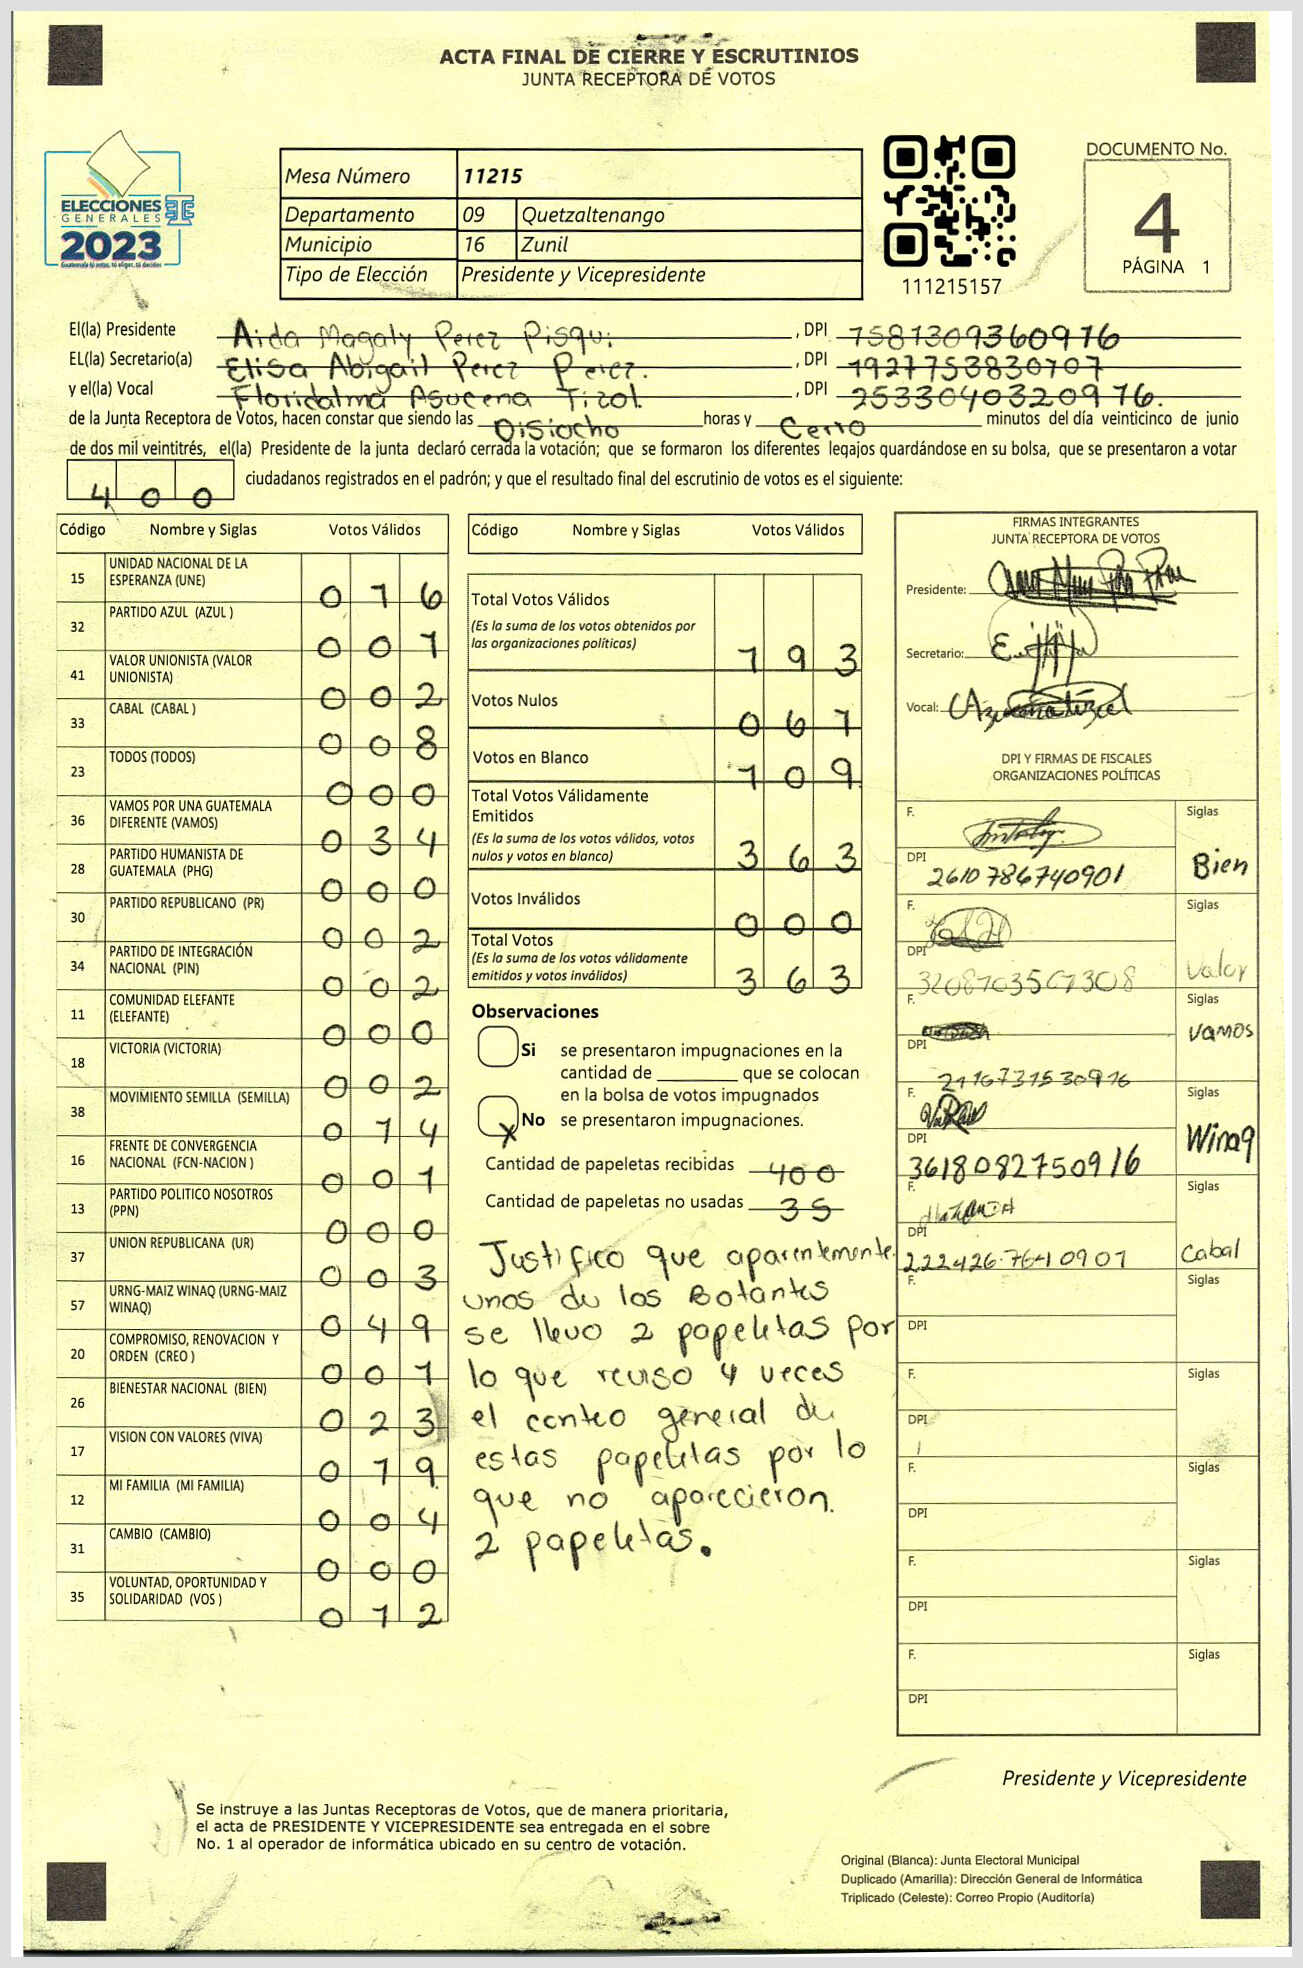 ACTA FINAL DE CIERRE Y ESCRUTINIOS
JUNTA RECEPTORA DE VOTOS
ELECCIONES
GENERALES
2023
Guatemala tú votas, tú eliges, tú decides
Mesa Número 11215
Departamento 09 Quetzaltenango
Municipio 16 Zunil
Tipo de Elección Presidente y Vicepresidente
111215157
DOCUMENTO No.
4
PÁGINA 1
El(la) Presidente Aida Magaly Perez Pisqui , DPI 1581309360976
EL(la) Secretario(a) Elisa Abigail Perez Perez. , DPI 1927753830107
y el(la) Vocal Floridalma Asucena Tizol , DPI 2533040320976.
de la Junta Receptora de Votos, hacen constar que siendo las Disiocho horas y Cerro minutos del día veinticinco de junio
de dos mil veintitrés, el(la) Presidente de la junta declaró cerrada la votación; que se formaron los diferentes legajos quardándose en su bolsa, que se presentaron a votar
400 ciudadanos registrados en el padrón; y que el resultado final del escrutinio de votos es el siguiente:
Código Nombre y Siglas Votos Válidos
15 UNIDAD NACIONAL DE LA
ESPERANZA (UNE) 016
32 PARTIDO AZUL (AZUL ) 001
41 VALOR UNIONISTA (VALOR
UNIONISTA) 002
33 CABAL (CABAL ) 008
23 TODOS (TODOS) 000
36 VAMOS POR UNA GUATEMALA
DIFERENTE (VAMOS) 034
28 PARTIDO HUMANISTA DE
GUATEMALA (PHG) 000
30 PARTIDO REPUBLICANO (PR) 002
34 PARTIDO DE INTEGRACIÓN
NACIONAL (PIN) 002
11 COMUNIDAD ELEFANTE
(ELEFANTE) 000
18 VICTORIA (VICTORIA) 002
38 MOVIMIENTO SEMILLA (SEMILLA) 014
16 FRENTE DE CONVERGENCIA
NACIONAL (FCN-NACION ) 001
13 PARTIDO POLITICO NOSOTROS
(PPN) 000
37 UNION REPUBLICANA (UR) 003
57 URNG-MAIZ WINAQ (URNG-MAIZ
WINAQ) 049
20 COMPROMISO, RENOVACION Y
ORDEN (CREO ) 001
26 BIENESTAR NACIONAL (BIEN) 023
17 VISION CON VALORES (VIVA) 019
12 MI FAMILIA (MI FAMILIA) 004
31 CAMBIO (CAMBIO) 000
35 VOLUNTAD, OPORTUNIDAD Y
SOLIDARIDAD (VOS ) 012
Código Nombre y Siglas Votos Válidos
Total Votos Válidos
(Es la suma de los votos obtenidos por
las organizaciones políticas) 193
Votos Nulos 061
Votos en Blanco 109
Total Votos Válidamente
Emitidos
(Es la suma de los votos válidos, votos
nulos y votos en blanco) 363
Votos Inválidos 000
Total Votos
(Es la suma de los votos válidamente
emitidos y votos inválidos) 363
Observaciones
Si se presentaron impugnaciones en la
cantidad de ________ que se colocan
en la bolsa de votos impugnados
X No se presentaron impugnaciones.
Cantidad de papeletas recibidas 400
Cantidad de papeletas no usadas 35
Justifico que aparentemente
unos de los Botantes
se llevo 2 papeletas por
lo que reviso 4 veces
el conteo general de
estas papeletas por lo
que no aparecieron
2 papeletas.
FIRMAS INTEGRANTES
JUNTA RECEPTORA DE VOTOS
Presidente:
Secretario:
Vocal:
DPI Y FIRMAS DE FISCALES
ORGANIZACIONES POLÍTICAS
F. Siglas
DPI 2610786740901 Bien
F. Siglas
DPI Valor
F. Siglas
DPI 2116731530916 vamos
F. Siglas
DPI 3618082750916 Winaq
F. Siglas
DPI Cabal
F. Siglas
DPI
F. Siglas
DPI
F. Siglas
DPI
F. Siglas
DPI
F. Siglas
DPI
Presidente y Vicepresidente
Se instruye a las Juntas Receptoras de Votos, que de manera prioritaria,
el acta de PRESIDENTE Y VICEPRESIDENTE sea entregada en el sobre
No. 1 al operador de informática ubicado en su centro de votación.
Original (Blanca): Junta Electoral Municipal
Duplicado (Amarilla): Dirección General de Informática
Triplicado (Celeste): Correo Propio (Auditoría)